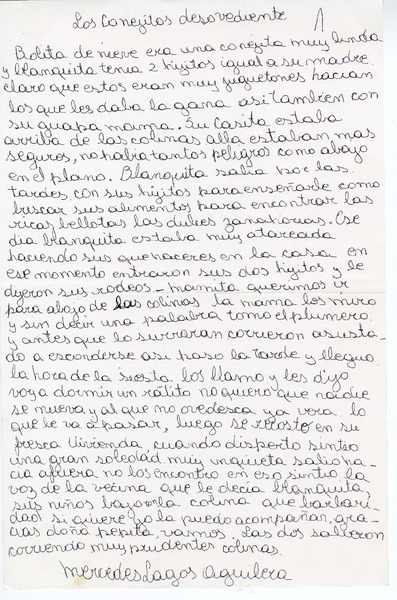 Los Conejitos desovediente
1
Bolita de nieve era una conejita muy linda
y blanquita tenia 2 hijitos igual a su madre
claro que estos eran muy juguetones hacian
los que les daba la gana asi tambien con
su guapa mama. Su Casita estaba
arriba de las colinas alla estaban mas
seguros, no habia tantos peligros como abajo
en el plano. Blanquita salia por las
tardes, con sus hijitos para enseñarle como
buscar sus alimentos para encontrar las
ricas bellotas las dulces zanahorias. Ese
dia blanquita estaba muy atareada
haciendo sus quehaceres en la casa en
ese momento entraron sus dos hijitos y le
dijeron sus rodeos - mamita querimos ir
para abajo de las colinas la mama los miro
y sin decir una palabra tomo el plumero
y antes que lo surraran corrieron asusta-
do a esconderse asi paso la tarde y lleguo
la hora de la siesta. los llamo y les dijo
voy a dormir un ratito no quiero que naidie
se mueva y al que no ovedesca ya vera lo
que le va a pasar, luego se recosto en su
fresca Vivienda, cuando disperto sintio
una gran soledad muy inquieta salio ha-
cia afuera no los encontro en eso sintio la
voz de la vecina que le decia blanquita,
sus niños bajaron la colina que barbari-
dad si quiere yo la puedo acompañar, gra-
cias doña pepita, vamos. Las dos salieron
corriendo muy prudentes colinas.
Mercedes Lagos Aguilera